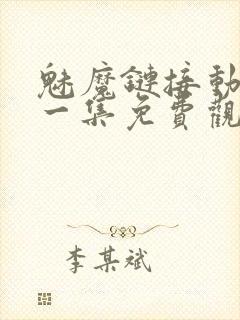 魅魔鏈接動
一集免費觀
李某斌